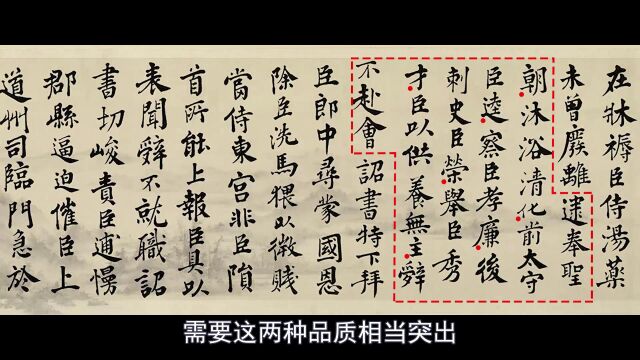 在牀褥臣侍湯藥
未曾廢離逮奉聖
朝沐浴清化前太守
臣逵察臣孝廉後
刺史臣榮舉臣秀
才臣以供養無主辭
不赴會詔書特下拜
臣郎中尋蒙國恩
除臣洗馬猥以微賤
當侍東宮非臣隕
首所能上報臣具以
表聞辭不就職詔
書切峻責臣逋慢
郡縣逼迫催臣上
道州司臨門急於
需要这两种品质相当突出